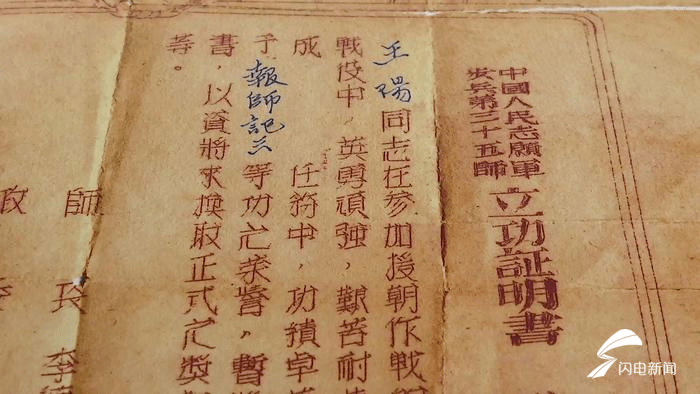 中國人民志願軍
步兵第三十五師
立功証明書
王陽同志在参加援朝作戰
戰役中，英勇頑強，艱苦耐
成 任務中，功績卓
予報師記三等功之荣誉，暫
書，以資將來換取正式之獎
等。
師 長 李
政
闪电新闻